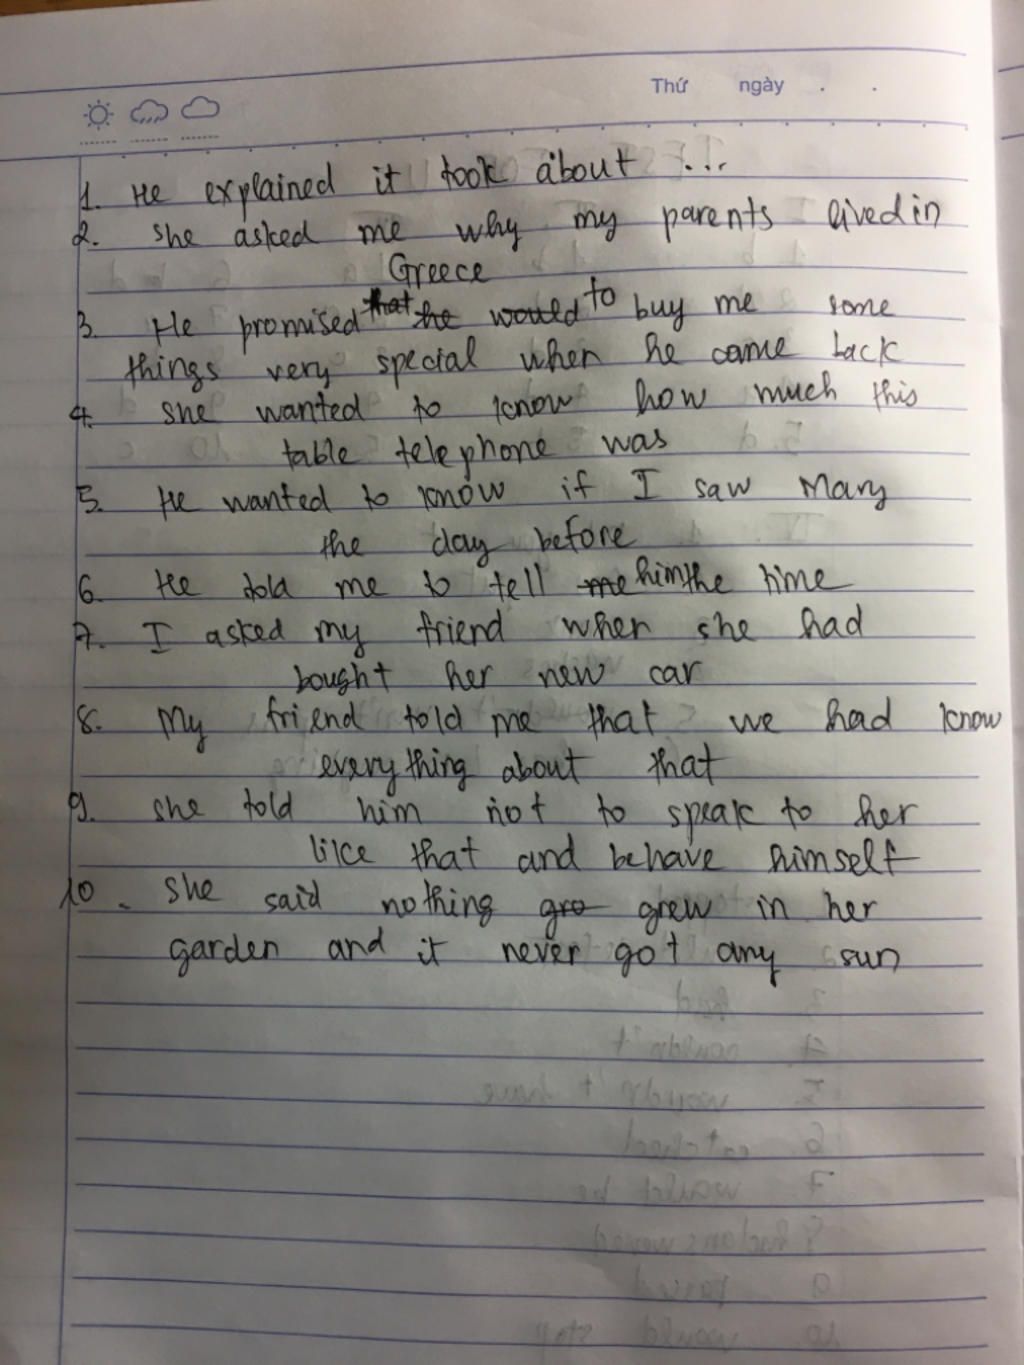 Thứ ngày . .
1. He explained it took about ...
2. she asked me why my parents lived in
Greece
3. He promised that he would to buy me some
things very special when he came back
4. she wanted to know how much this
table telephone was
5. He wanted to know if I saw Mary
the day before
6. He told me to tell me him the time
7. I asked my friend when she had
bought her new car
8. My friend told me that we had know
everything about that
9. she told him not to speak to her
like that and behave himself
10. she said nothing gro grew in her
garden and it never got any sun